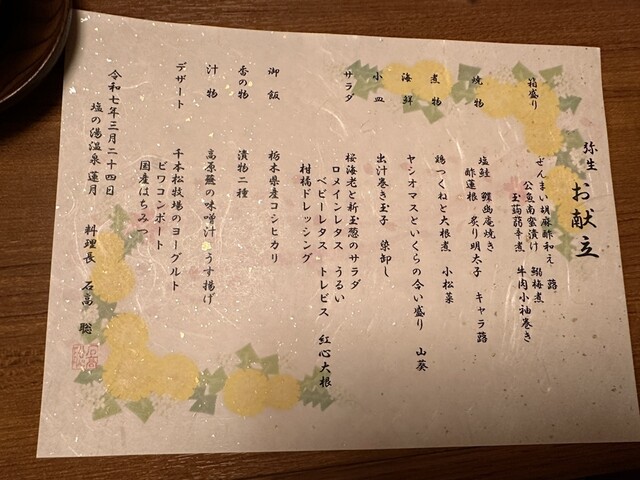 弥生 お献立
箱盛り ぜんまい胡麻酢和え 蕗
公魚南蛮漬け 鰯梅煮
玉蒟蒻辛煮 牛肉小袖巻き
焼物 塩鮭 鰈幽庵焼き
酢蓮根 炙り明太子 キャラ蕗
煮物 鶏つくねと大根煮 小松菜
海鮮 ヤシオマスといくらの合い盛り 山葵
小皿 出汁巻き玉子 染卸し
サラダ 桜海老と新玉葱のサラダ
ロメインレタス うるい
ベビーレタス トレビス 紅心大根
柑橘ドレッシング
御飯 栃木県産コシヒカリ
香の物 漬物二種
汁物 高原蕪の味噌汁 うす揚げ
デザート 千本松牧場のヨーグルト
ビワコンポート
国産はちみつ
令和七年三月二十四日
塩の湯温泉 蓮月 料理長 石高 聡